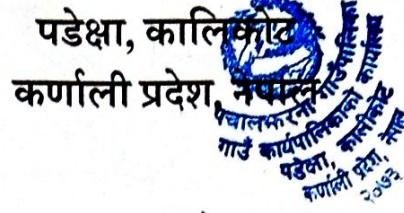 पडेक्षा, कालिकोट
कर्णाली प्रदेश, नेपाल
पचालझरना गाउँपालिका
गाउँ कार्यपालिकाको कार्यालय
पडेक्षा, कालीकोट
कर्णाली प्रदेश, नेपाल
२०७३